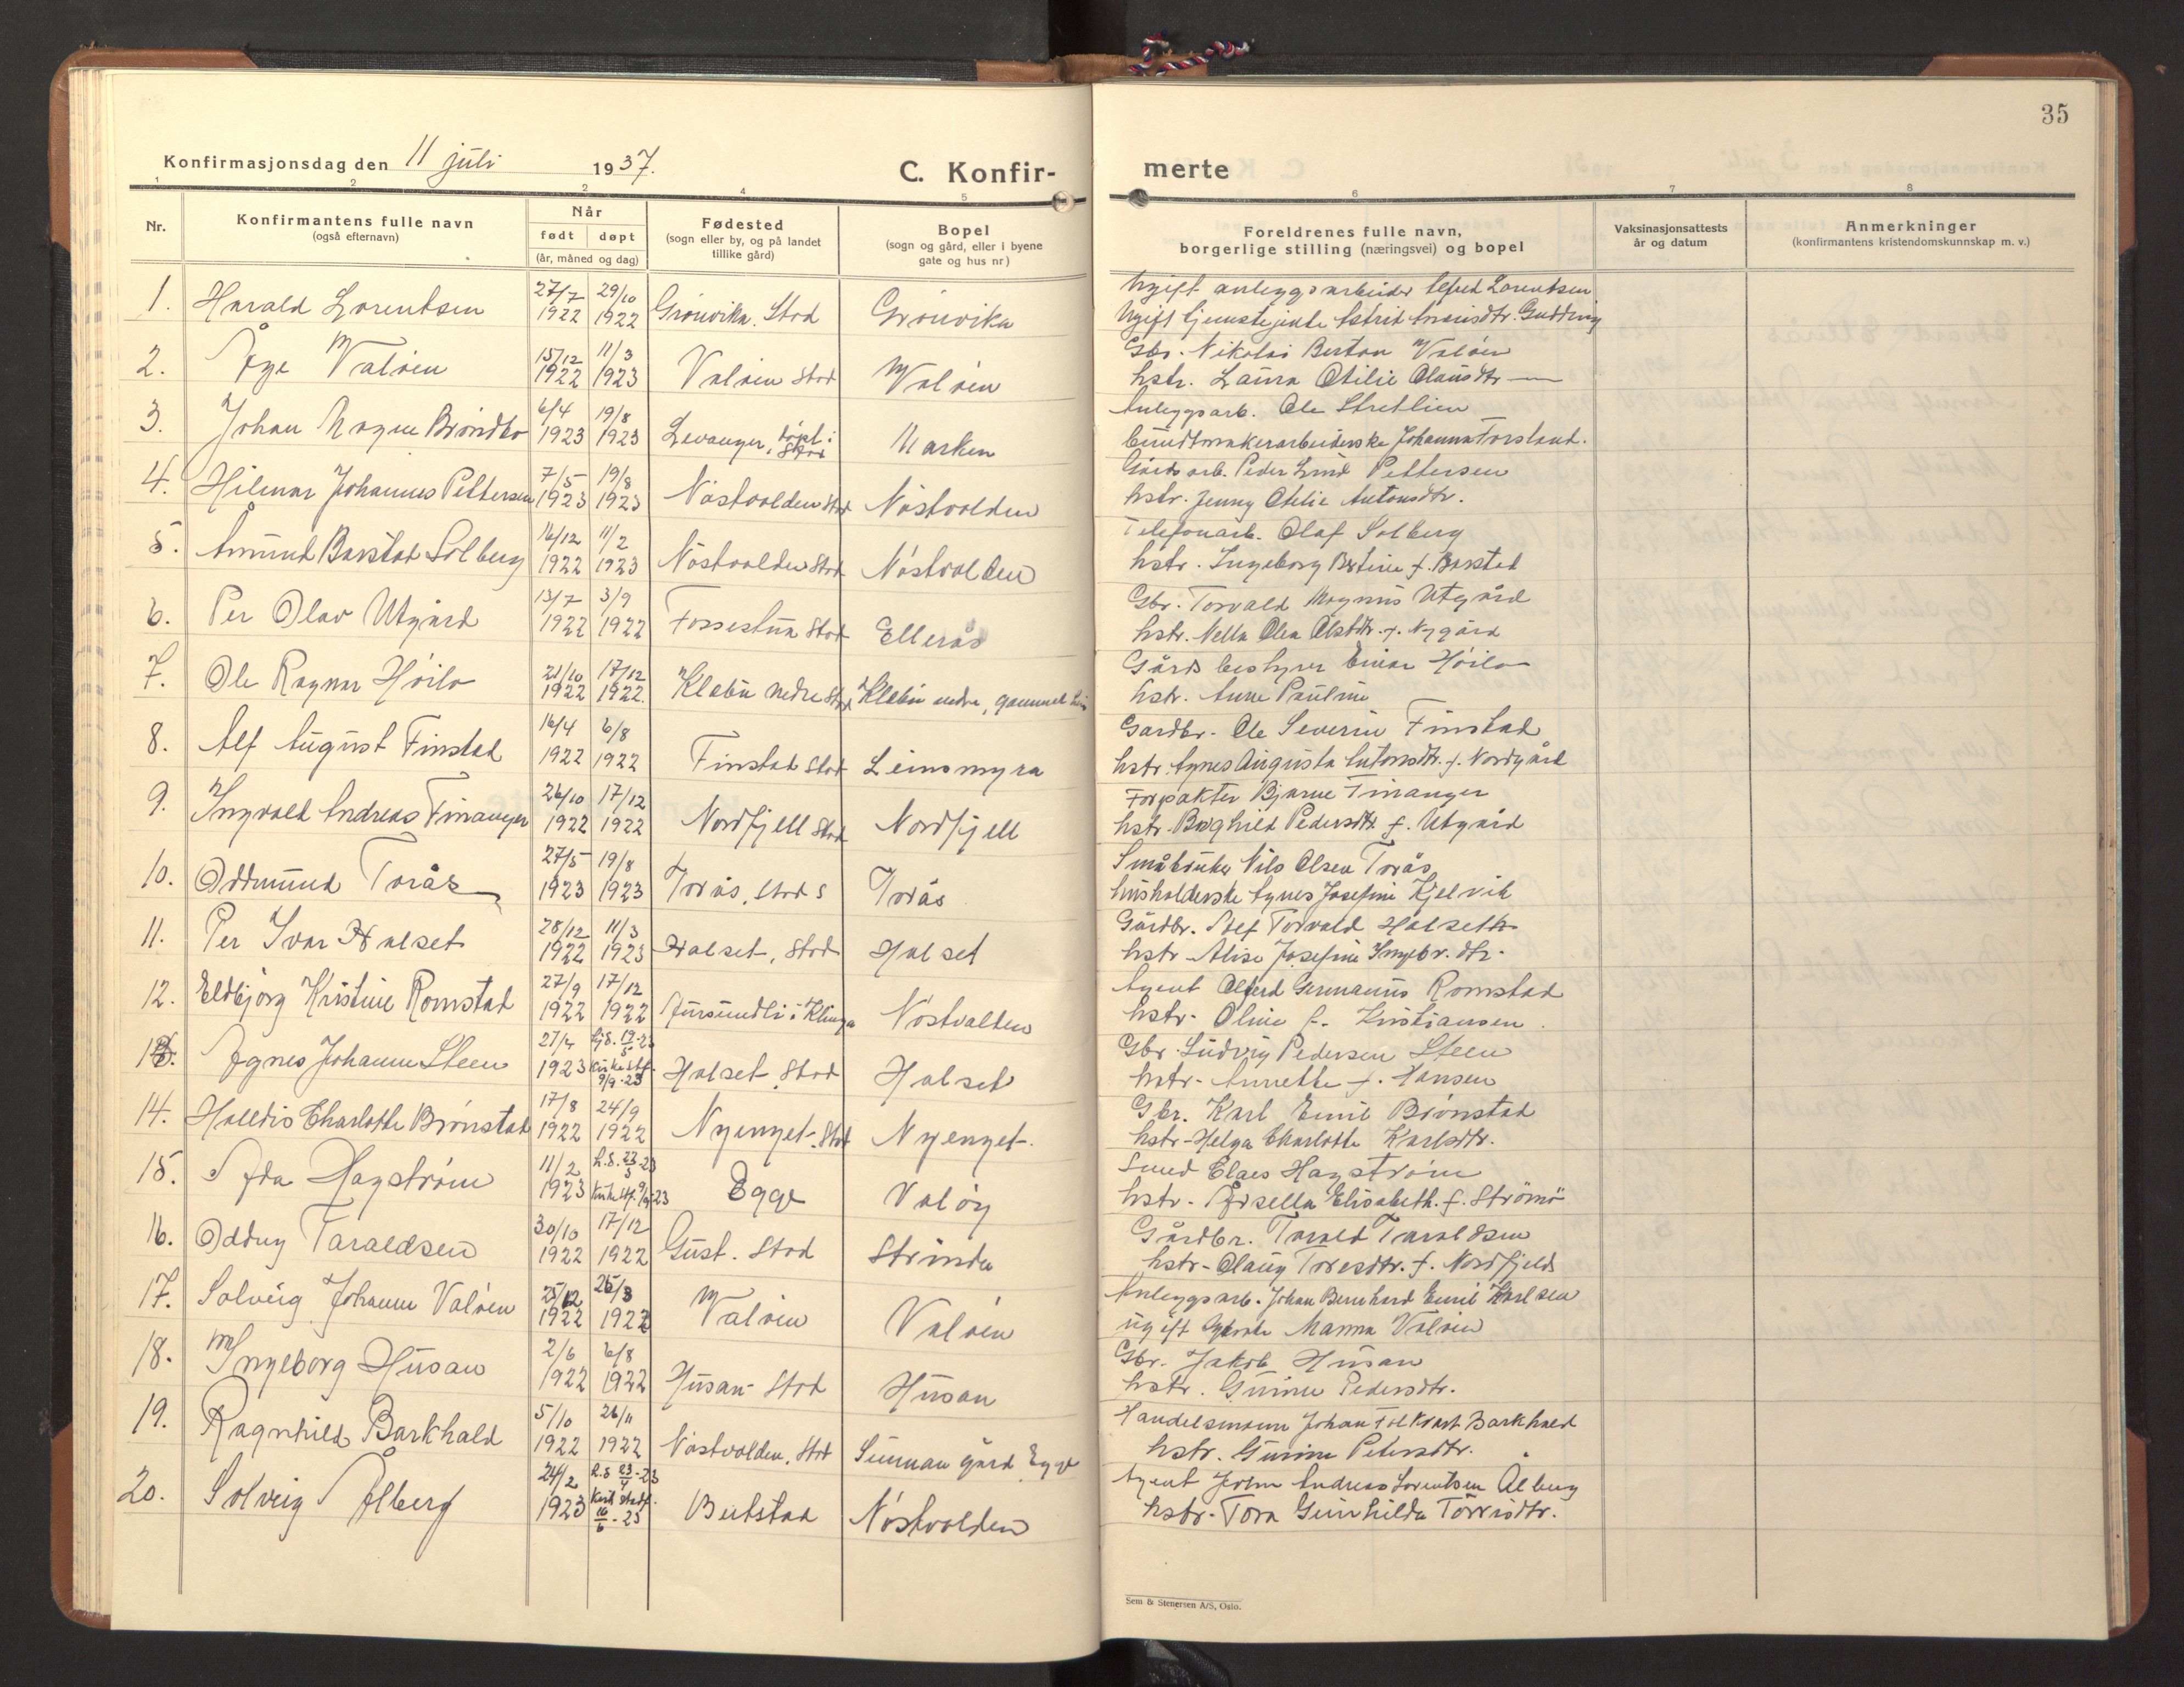 35
Konfirmasjonsdag den 11 juli 1937.
C. Konfir-
merte
1 2 2 4 5 6 7 8
Nr.
Konfirmantens fulle navn
(også efternavn)
Når
født døpt
(år, måned og dag)
Fødested
(sogn eller by, og på landet
tillike gård)
Bopel
(sogn og gård, eller i byene
gate og hus nr)
Foreldrenes fulle navn,
borgerlige stilling (næringsvei) og bopel
Vaksinasjonsattests
år og datum
Anmerkninger
(konfirmantens kristendomskunnskap m. v.)
1. Harald Lorentsen 27/7 1922 29/10 1922 Grönvika. Stod Grönvika
Ugift anleggsarbeider Alfred Lorentsen
Ugift tjenestejente Astrid Gudding
2. Åge Valöen 15/12 1922 11/3 1923 Valöen Stod Valöen
Gbr. Nikolai Berton Valöen
hstr. Laura Otilie Olausdtr —
3. Johan Magne Bröndbo 6/4 1923 19/8 1923 Levanger, döpt i Stod Marken
Anleggsarb. Ole Stretlien
Johanna Forsland.
4. Hilmar Johannes Pettersen 7/5 1923 19/8 1923 Nöstvolden Stod Nöstvolden
Gårdsarb. Peder Lund Pettersen
hstr. Jenny Otelie Antonsdtr.
5. Åmund Barstad Solberg 16/12 1922 11/2 1923 Nöstvolden Stod Nöstvolden
Telefonarb. Olaf Solberg
hstr. Ingeborg Bertine f. Barstad
6. Per Olav Utgård 13/7 1922 3/9 1922 Fossestua Stod Ellerås
Gbr. Torvald Magnus Utgård
hstr. Nella Olea f. Nygård
7. Ole Ragnar Höilo 21/10 1922 17/12 1922. Klæbu nedre Stod Klæbu nedre, gammel
Gårdsbestyrer Einar Höilo
hstr. Anne Pauline
8. Alf August Finstad 16/4 1922 6/8 1922 Finstad Stod Leinsmyra
Gardbr. Ole Severin Finstad
hstr. Agnes Augusta Antonsdtr. f. Nordgård
9. Ingvald Andreas Finanger 26/10 1922 17/12 1922 Nordfjell Stod Nordfjell
Forpakter Bjarne Finanger
hstr. Borghild Pedersdtr f. Utgård
10. Oddmund Torås 27/5 1923 19/8 1923 Torås, Stod S Torås
Småbruker Nils Olsen Torås
husholderske Agnes Josefine Kjelvik
11. Per Ivar Halset 28/12 1922 11/3 1923 Halset, Stod Halset
Gårdbr. Alef Torvald Halseth
hstr. Alise Josefine Ingebr.dtr.
12. Eldbjörg Kristine Romstad 27/9 1922 17/12 1922 Fursundli i Klinga Nöstvolden
Agent Alferd Germanus Romstad
hstr. Oline f. Kristiansen.
13. Agnes Johanne Steen 27/4 1923 hj.d. 19/5-23 kirke stf. 9/9-23 Halset Stod Halset
Gbr. Ludvig Pedersen Steen
hstr. Annette f. Hansen
14. Halldis Charlotte Brönstad 17/8 1922 24/9 1922 Nyenget. Stod Nyenget.
Gbr. Karl Emil Brönstad
hstr. Helga Charlotte Karlsdtr.
15. Ada Hagström 11/2 1923 h.d. 23/5-23 kirke stf. 9/9-23 Egge Valöy
Smed Claes Hagström
hstr. Elisabeth. f. Strömö
16. Oddny Taraldsen 30/10 1922 17/12 1922 Gust. Stod Strinda
Gårdbr. Tarald Taraldsen
hstr. Olaug Toresdtr. f. Nordfjeld
17. Solveig Johanne Valöen 25/12 1922 26/3 1922 Valöen Valöen
Anleggsarb. Johan Bernhard Emil Karlsen
ugift Manna Valöen
18. Ingeborg Húsan 2/6 1922 6/8 1922 Húsan Stod Húsan
Gbr. Jakob Húsan
hstr. Gurine Pedersdtr.
19. Ragnhild Barkhald 5/10 1922 26/11 1922 Nöstvolden. Stod Sunnan gård Egge
Handelsmann Johan Folkvart Barkhald
hstr. Gurine Petersdtr.
20. Solveig Ålberg 24/2 1923 h.d. 23/4-23 kirk stadf. 10/6-23 Beitstad Nöstvolden
Agent Johan Andreas Lorentsen Ålberg
hstr. Tora Gunhilda Torrisdtr.
Sem & Stenersen A/S, Oslo.